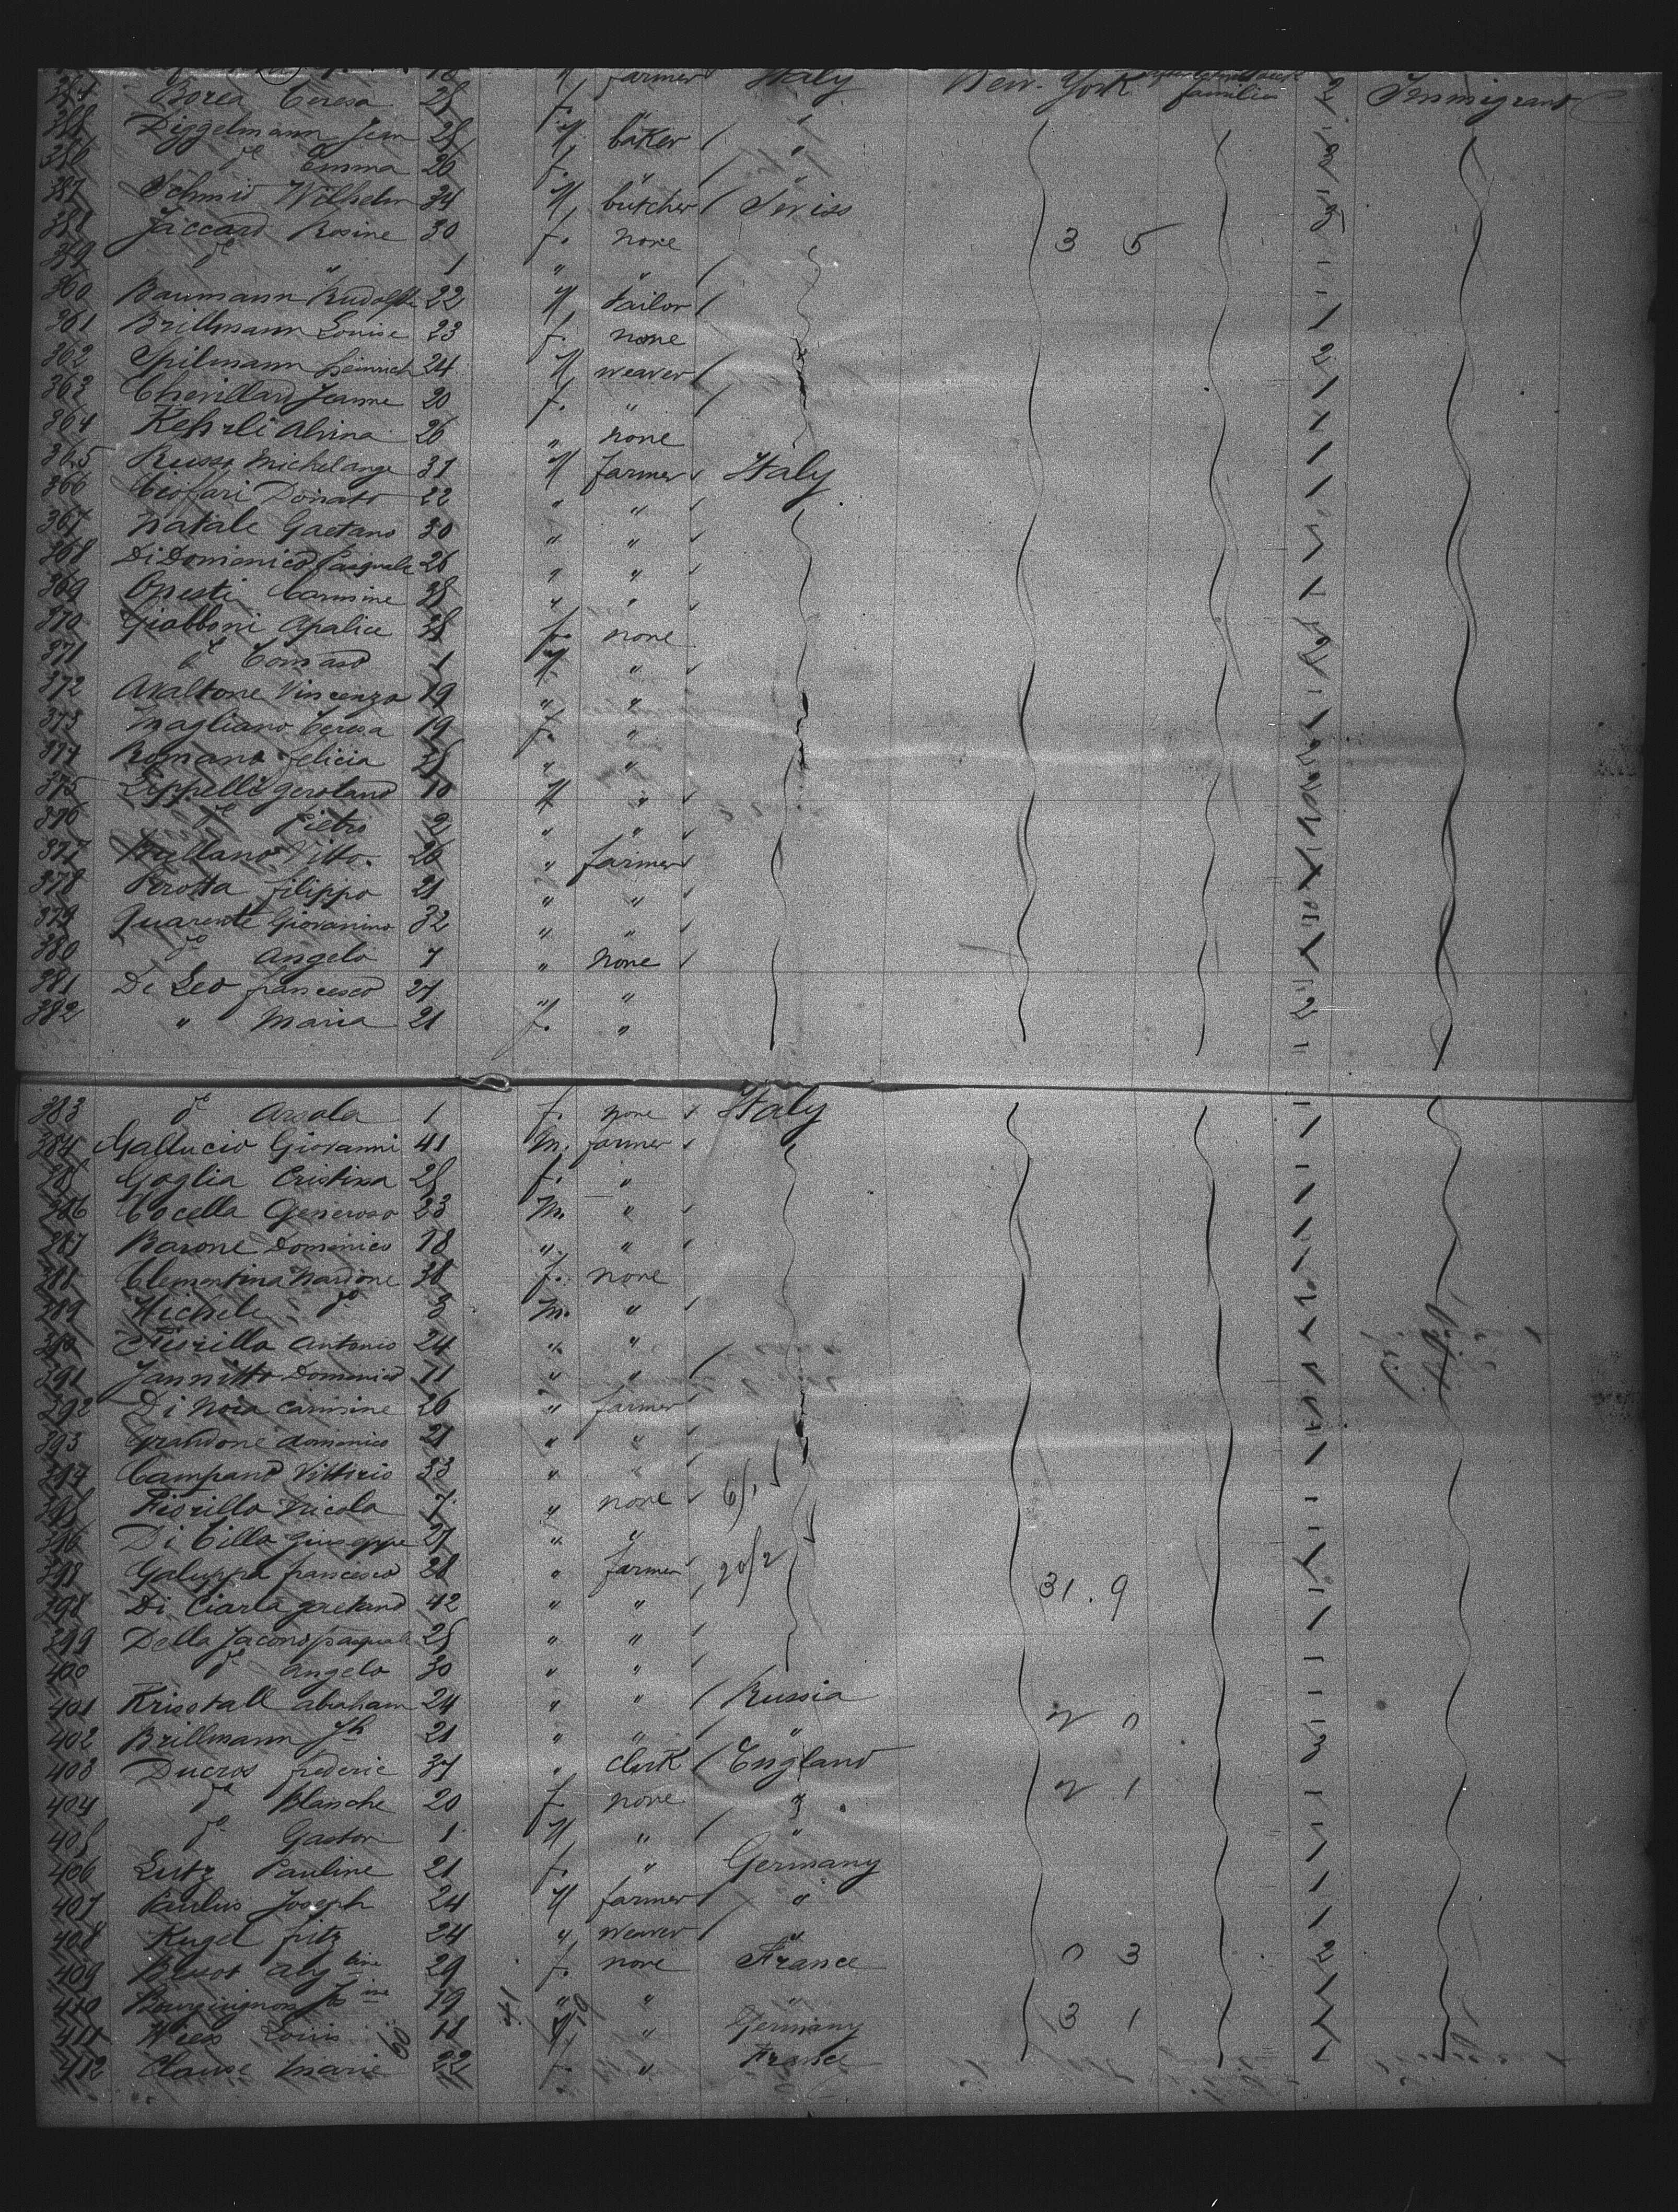 farmer Italy New York families 2 Immigrant
354 Borea Teresa 28 f. " "
355 Diggelmann Jean 28 M baker / "
356 do Emma 26 f. " / "
357 Schmid Wilhelm 34 M butcher / Swiss
358 Jaccard Rosine 30 f. none 3 5
359 do " 1 " " /
360 Baumann Rudolf 22 M tailor /
361 Brillmann Louise 23 f. none
362 Spilmann Heinrich 24 M weaver / 2
363 Chevillard Jeanne 20 f. " /
364 Kehrli Alvina 26 " none
365 Russo Michelange 31 M farmer Italy
366 Cioffari Donato 22 " "
367 Natale Gaetano 30 " "
368 Di Domenico Pasquale 26 " "
369 Onesti Carmine 28 " "
370 Giabboni Apalice 38 f. none
371 do Tomaso 1 M "
372 Avaltone Vincenzo 19 " "
373 Magliano Teresa 19 f. "
374 Romano Felicia 38 " "
375 Zeppelli Geroland 10 M "
376 do Pietro 2 " "
377 Bullano Vitto. 26 " farmer
378 Perotta Filippo 21 " "
379 Quarente Giovanino 32 " "
380 do Angelo 7 " none
381 De Leo Francesco 27 " "
382 " Maria 21 f. " 2
383 do 1 f. none Italy
384 Gallucio Giovanni 41 M. farmer
385 Goglia Cristina 28 f. "
386 Cocella Generoso 33 M. "
387 Barone Dominico 18 " "
388 Clementina Nardone 38 f. none
389 Michele do 3 M. "
390 Fiorillo Antonio 24 " "
391 Jannitto Domenico 11 " "
392 Di Noia Carmine 26 " farmer
393 Grandone Domenico 21 " "
394 Campano Vittorio 33 " "
395 Fiorillo Nicola 7 " none
396 Di Cillo Giuseppe 27 " "
398 Galuppa Francesco 28 " farmer 20/2 31.9
398 Di Ciarla Gaetano 42 " "
399 Della Jacono Pasquale 28 " "
400 do Angelo 30 " "
401 Krisstall Abraham 24 " " / Russia
402 Brillmann Jh 21 " " / " 3
403 Ducros Frederic 37 " clerk / England
404 do Blanche 20 f. none "
405 do Gaston 1 M " / "
406 Lutz Pauline 21 f. " Germany
407 Paulus Joseph 24 M farmer / "
408 Kugel Fritz 24 " weaver / "
409 29 f. none France 0 3 2
410 19 " " "
411 Wiess Louis 18 M " Germany 3 1
412 Clause Marie 22 f. " France